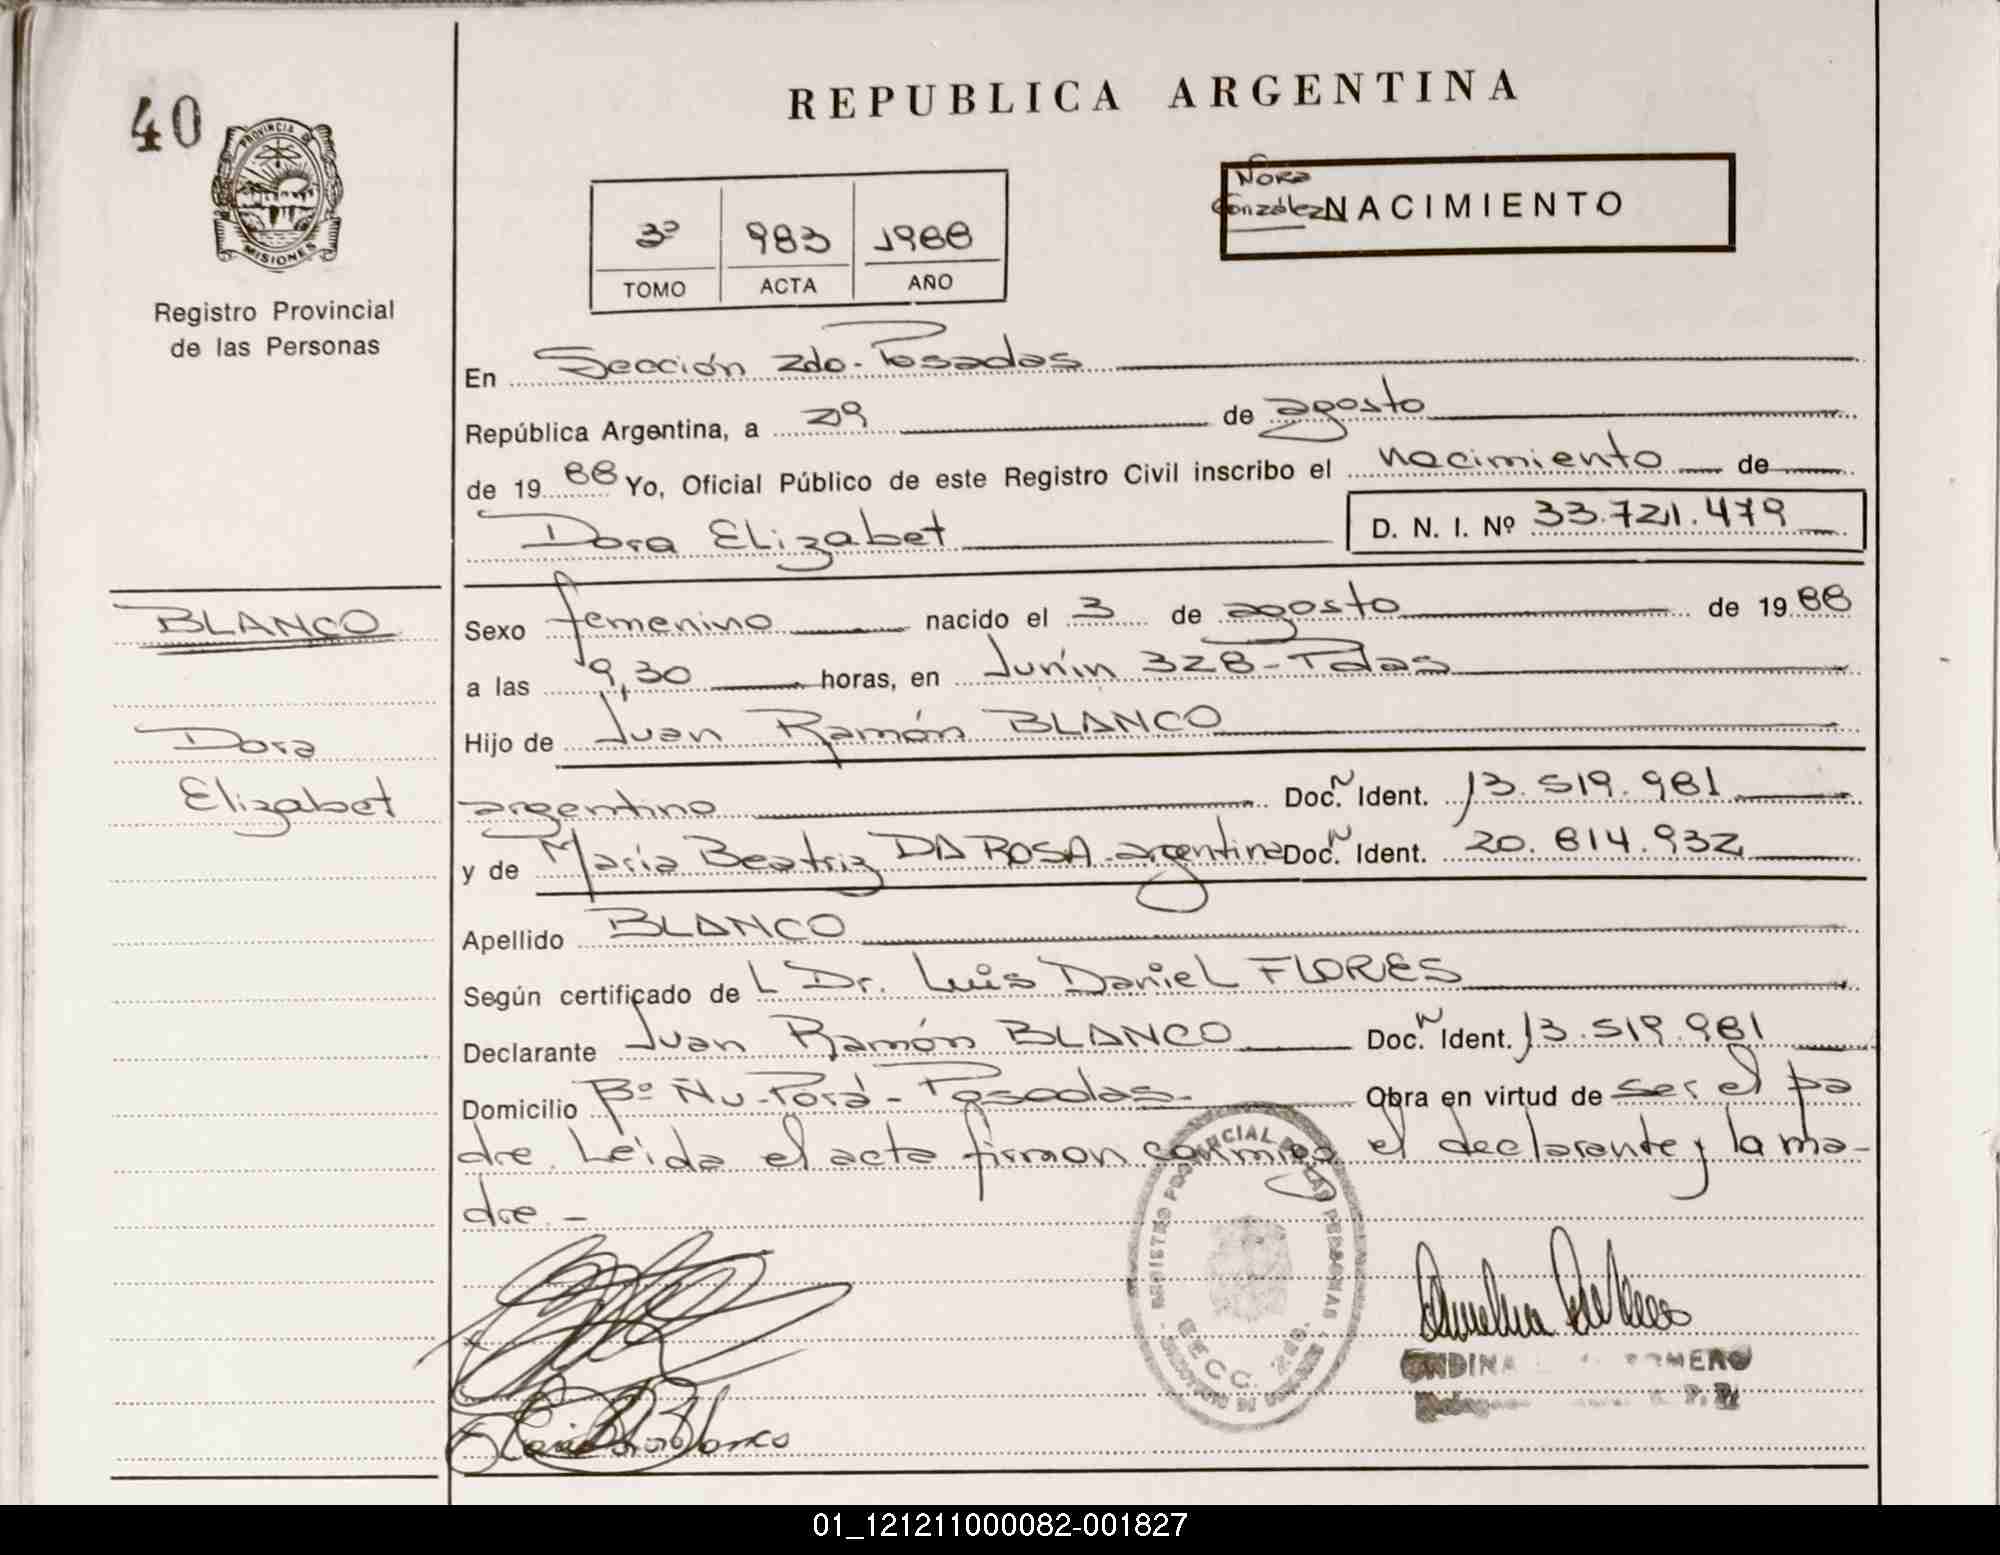 40
PROVINCIA DE
MISIONES
Registro Provincial
de las Personas
REPUBLICA ARGENTINA
3º 983 1988
TOMO ACTA AÑO
Nora
González
NACIMIENTO
En Sección 2do. Posadas
República Argentina, a 29 de agosto
de 1988 Yo, Oficial Público de este Registro Civil inscribo el nacimiento de
Dora Elizabet D. N. I. Nº 33.721.479
BLANCO
Dora
Elizabet
Sexo femenino nacido el 3 de agosto de 1988
a las 9,30 horas, en Junín 328-Pdas
Hijo de Juan Ramón BLANCO
argentino Doc. N Ident. 13.519.981
y de María Beatriz DA ROSA argentina Doc. N Ident. 20.814.932
Apellido BLANCO
Según certificado del Dr. Luis Daniel FLORES
Declarante Juan Ramón BLANCO Doc. N Ident. 13.519.981
Domicilio Bº Ñu-Porá- Posadas.- Obra en virtud de ser el pa
dre. Leída el acta firman conmigo el declarante y la ma-
dre.-
REGISTRO PROVINCIAL DE LAS PERSONAS
SECC. 2do.
ONDINA ROMERO
01_121211000082-001827